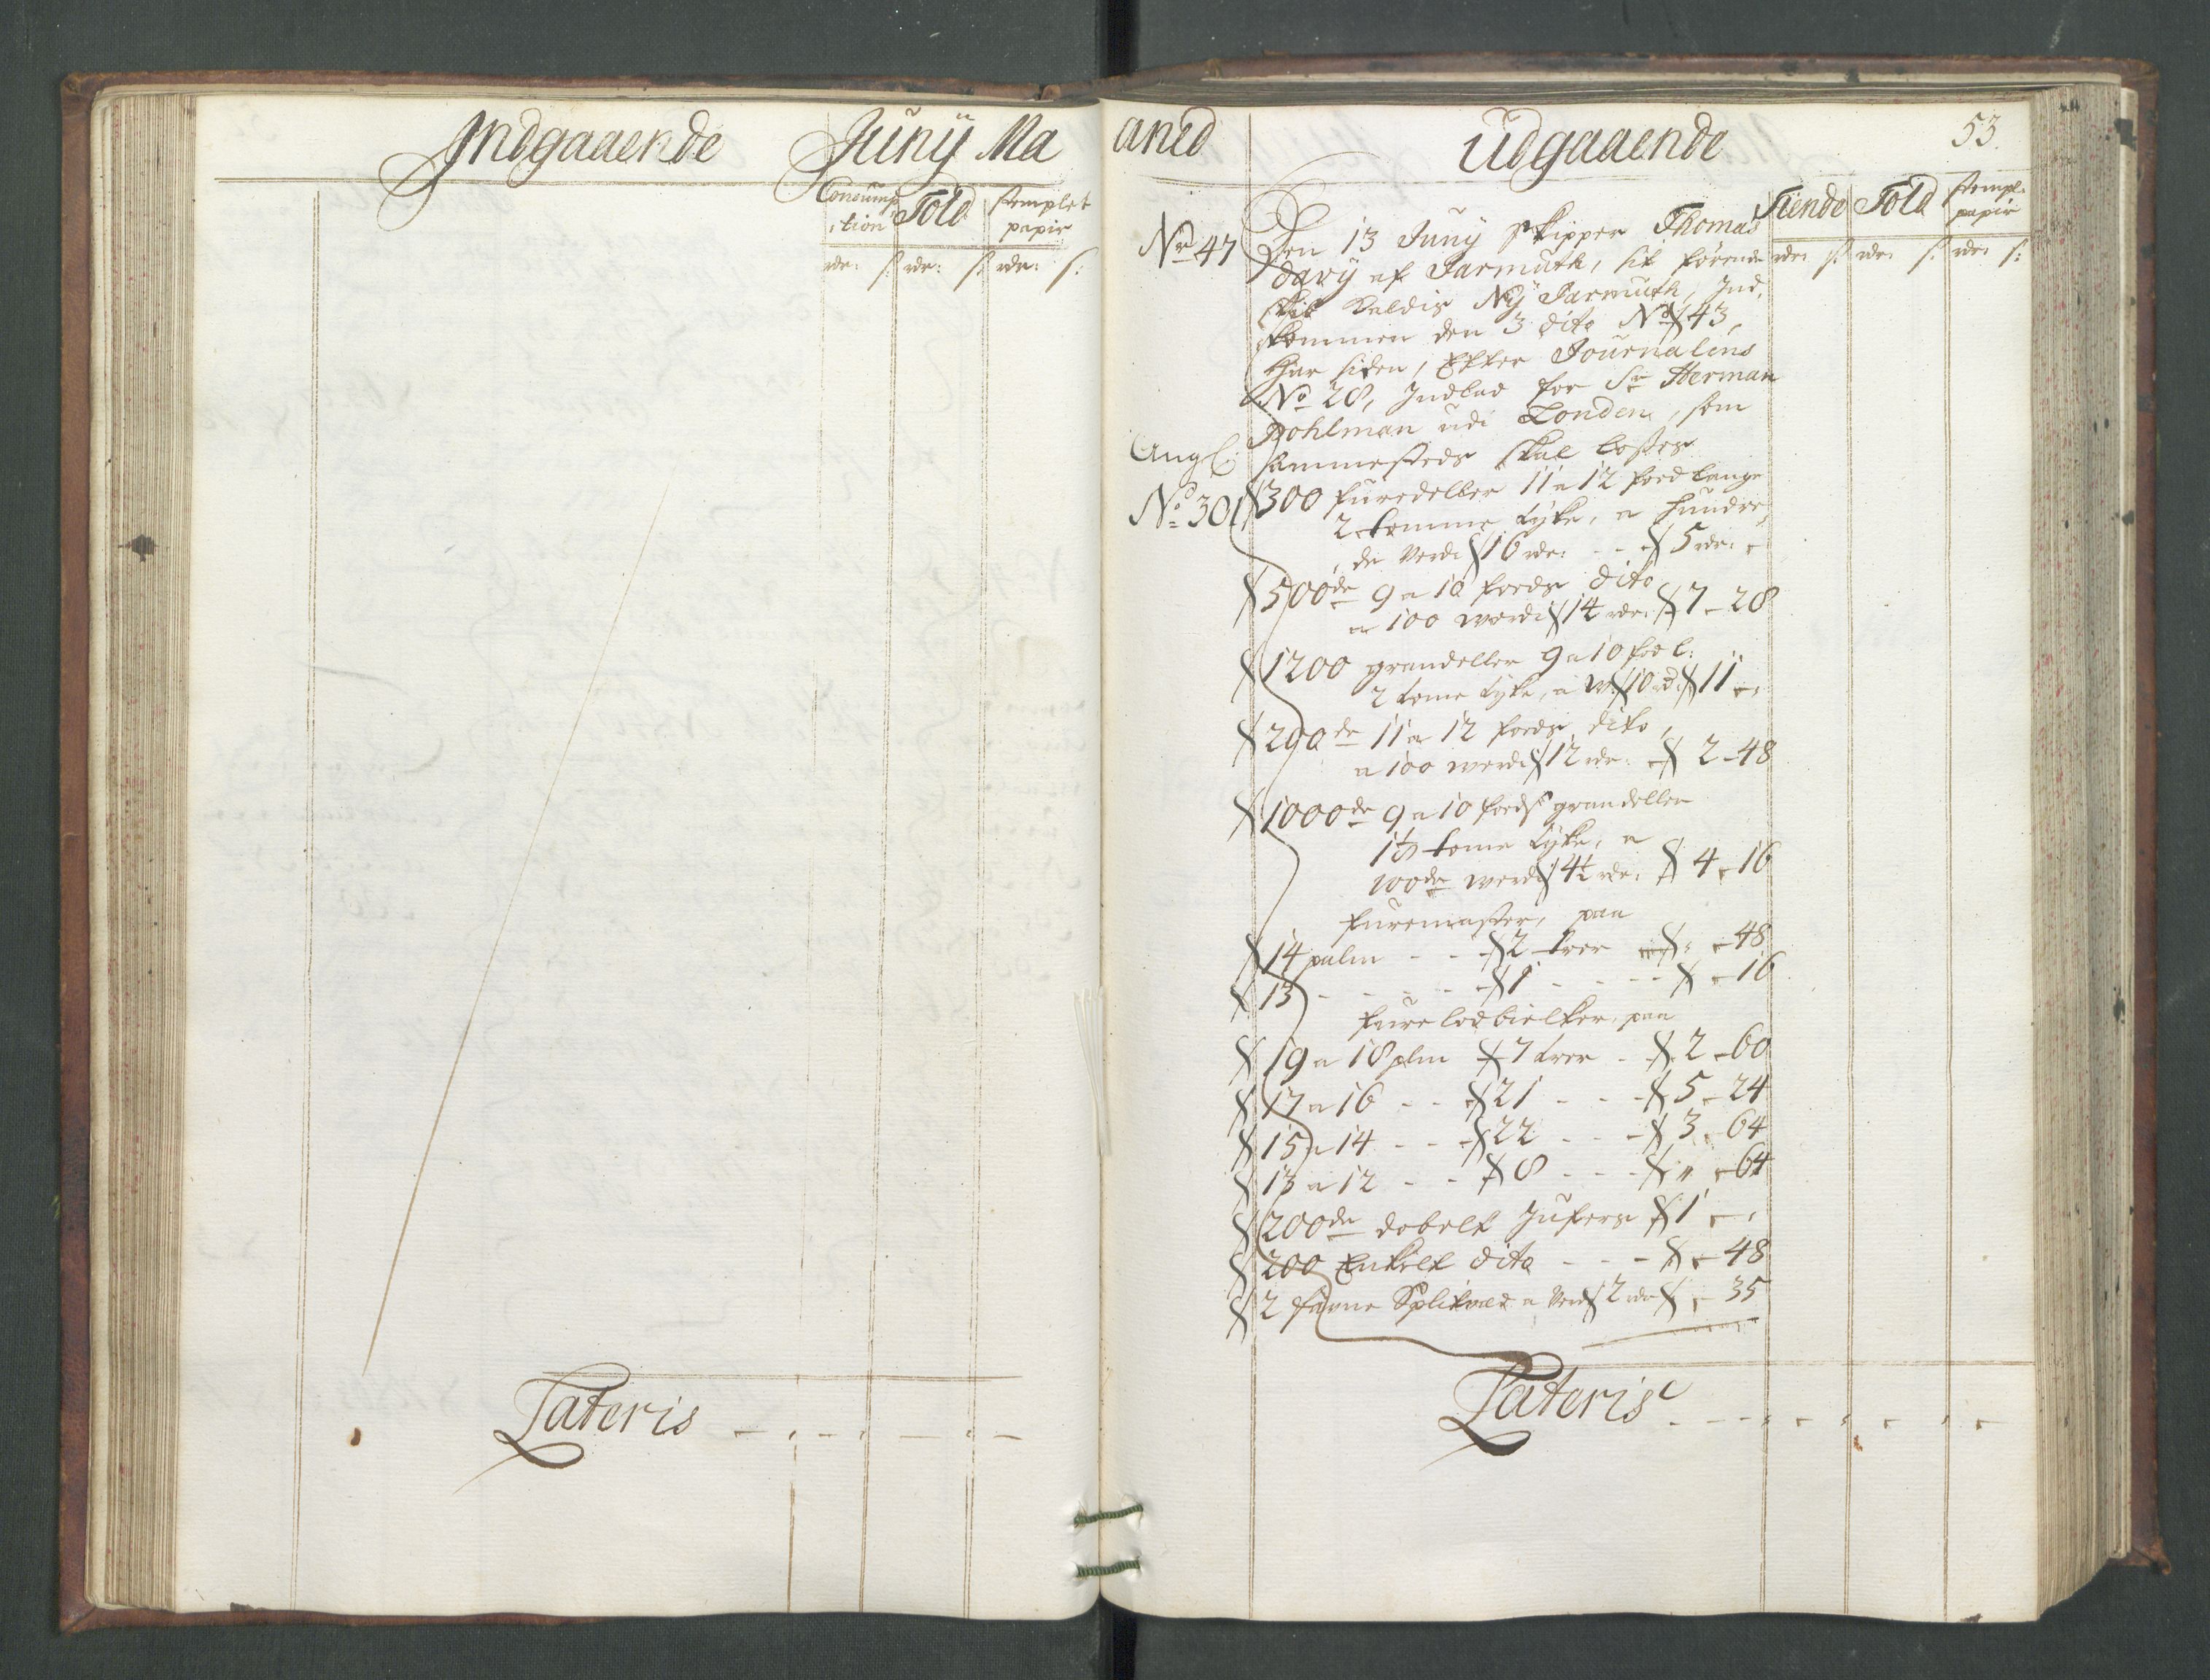 Indgaaende Junÿ Ma
Consump
,tion Told stemplet
papir
rdr: s: rdr: s: rdr: s:
Lateris
aned udgaaende 53.
Tiende Told stempl:
papir
rdr: s: rdr: s: rdr: s:
No 47 Den 13 Junÿ Skipper Thomas
Davÿ af Jarmuth, sitförende
Skib Kaldis Nÿ Jarmuth, Ind,
kommen den 3 dito No 43,
Har siden, Efter Journalens
No 28, Indlad for Sr Herman
Pohlman udi Londen, som
Angl: sammesteds skal losses
No 301 300 furedeller 11 a 12 foed lange
2 tomme tÿke, a hundre,
,de Verdi 16 rdr: - - 5 rdr:
500de 9 a 10 foeds dito
a 100 werdi 14 rdr: 7 - 28
1200 grandeller 9 a 10 foe l:
2 tome tÿke, a W: 10 rd 11 -
200de 11 a 12 foeds dito,
a 100 werdi 12 rdr: 2 - 48
1000de 9 a 10 foeds grandeller
1½ tome tÿke, a
100de werdi 4½ rdr: 4 - 16
furemaster, paa
14 palm - - 2 trer - 48
13 - - - - 1 - - - - 16
fure lodbielker, paa
19 a 18 plm 7 trer - 2 - 60
17 a 16 - - 21 - - - 5 - 24
15 a 14 - - 22 - - - 3 - 64
13 a 12 - - 8 - - - " - 64
200de dobelt Jufers 1 -
200 Enkelt dito - - - - 48
2 favne Splitved a Verdi 2 rdr - 35
Lateris